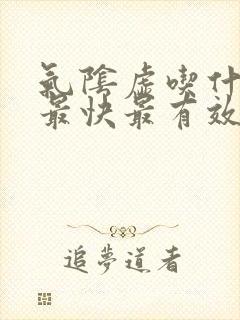 氣陰虛喫什
最快最有效
追夢道者